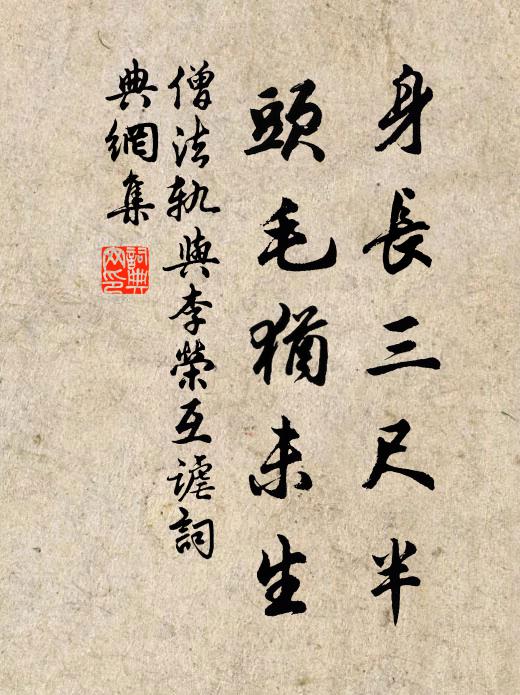 身長三尺半
頭毛猶未生
僧法軌與李榮互謔詞
典網集
詞典